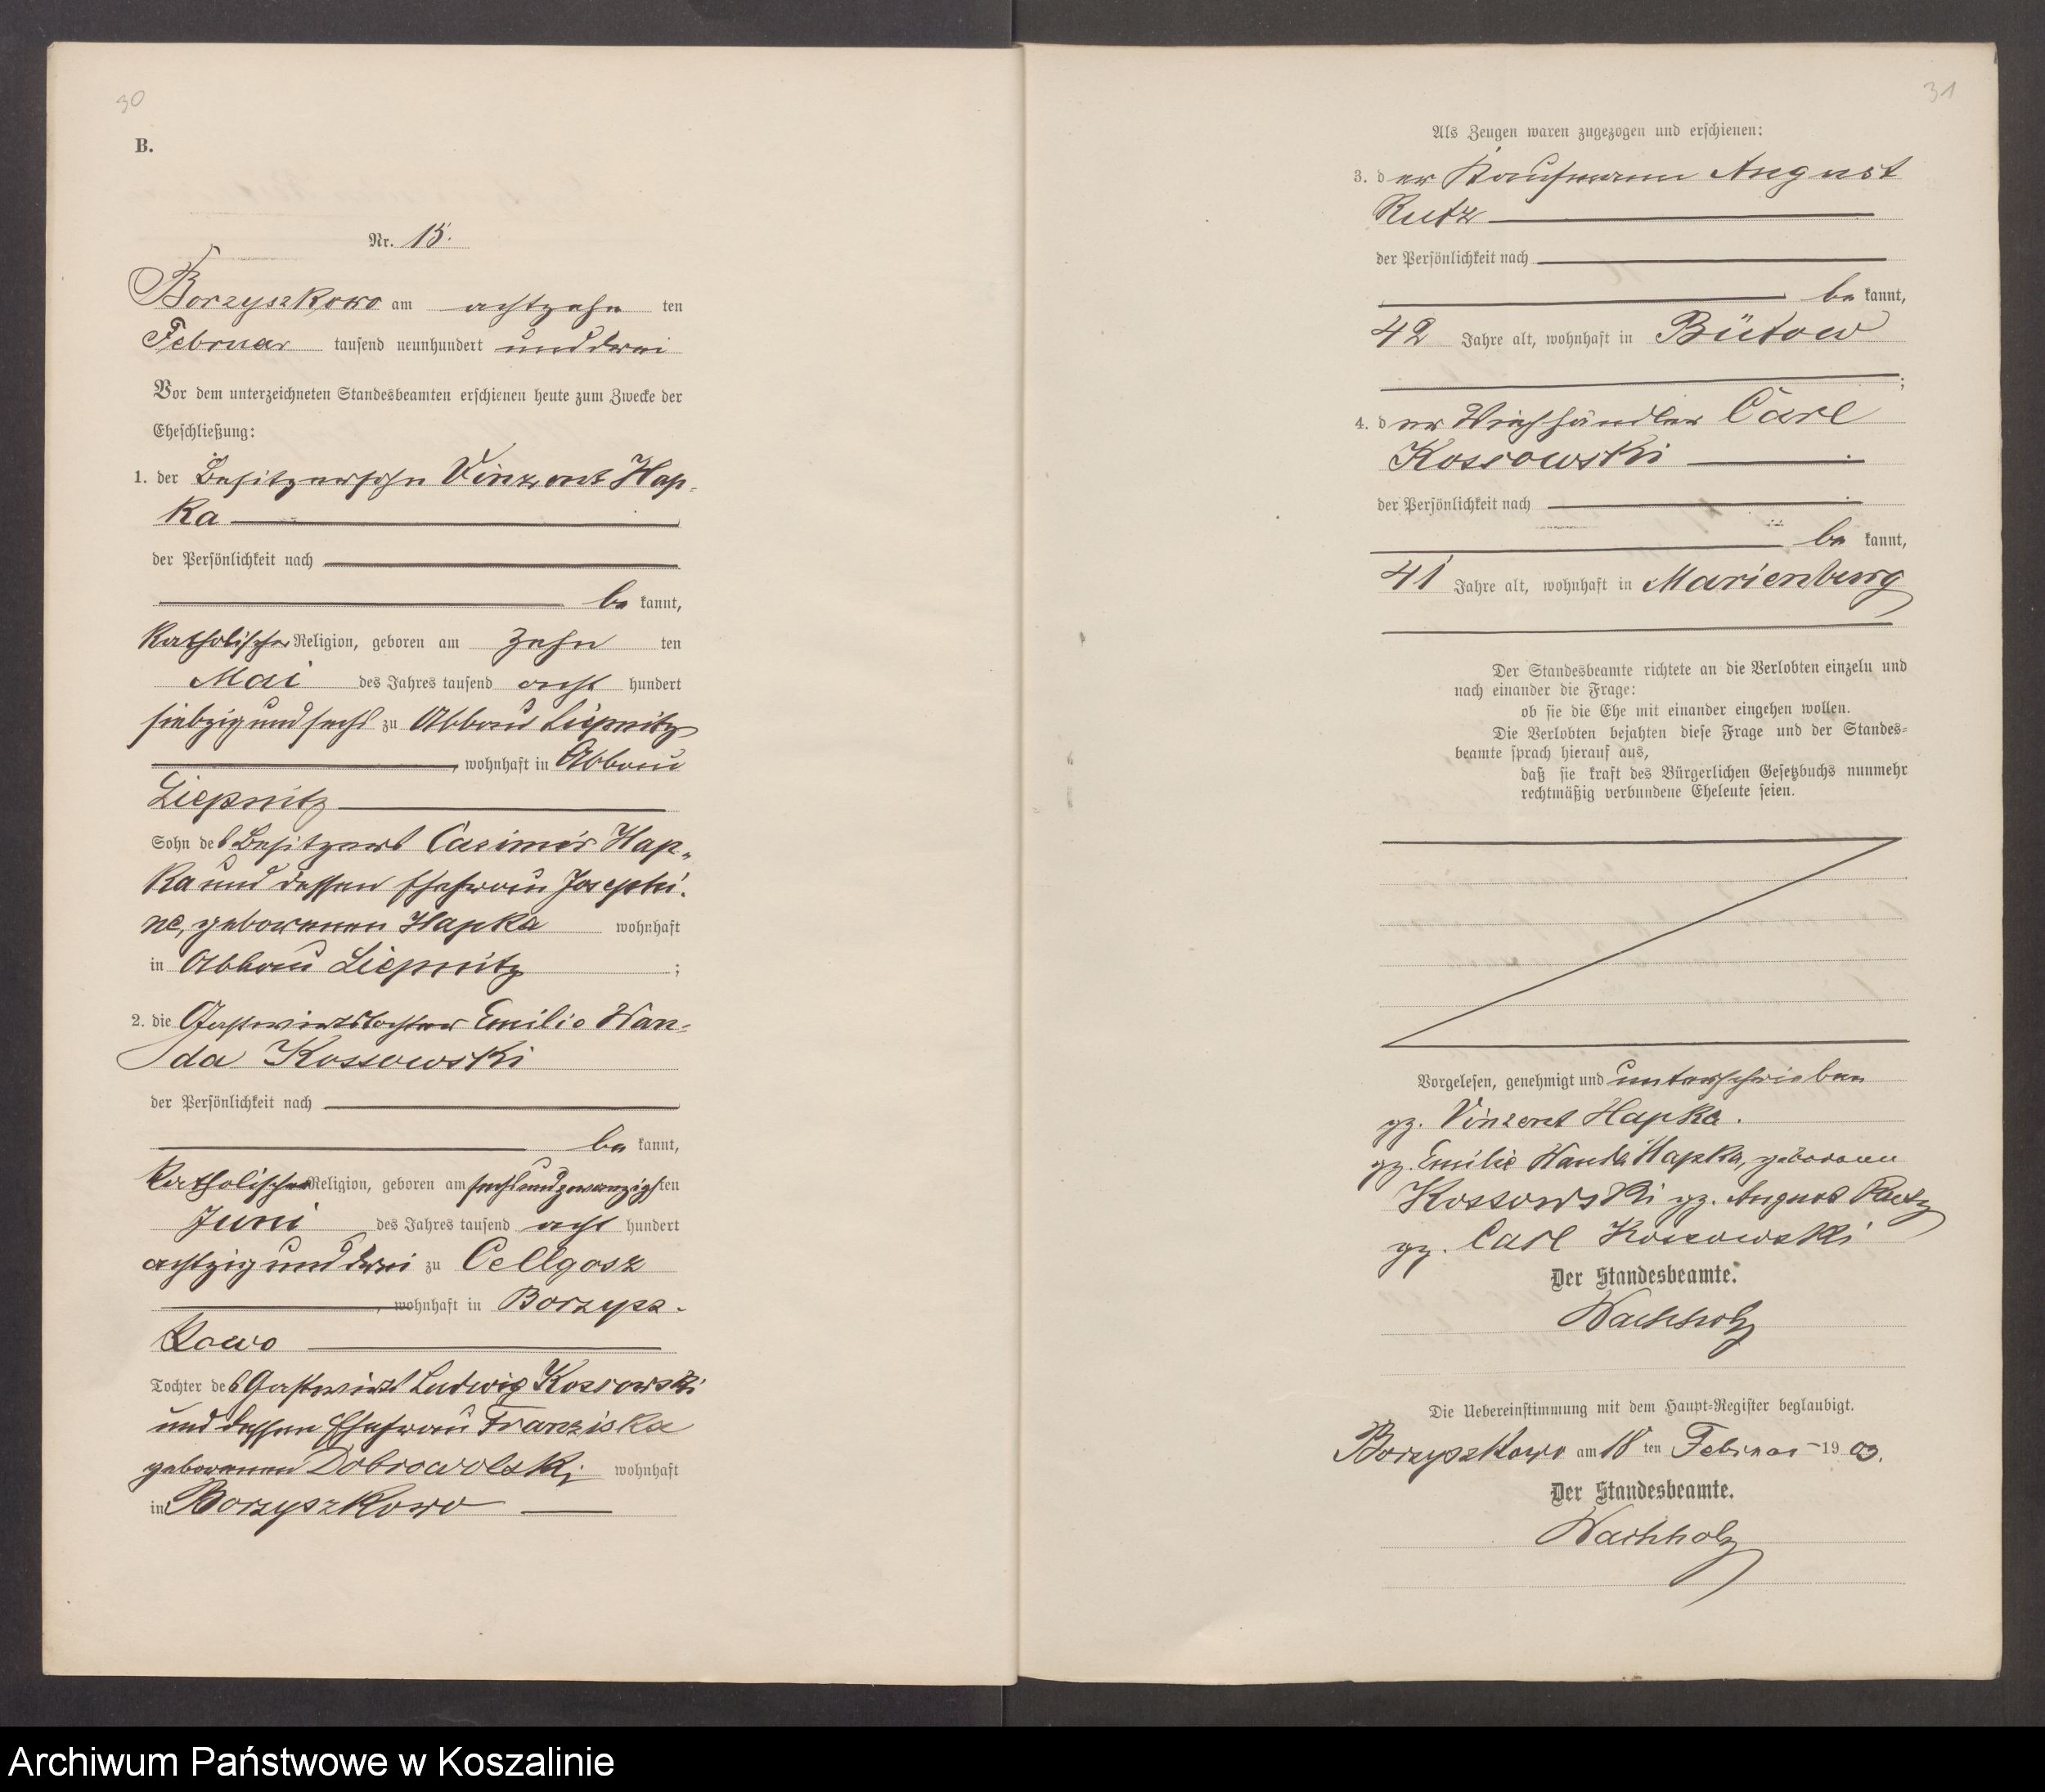 30
B.
Nr. 15.
Borzyszkowo am achtzehn ten
Februar tausend neunhundert und drei
Vor dem unterzeichneten Standesbeamten erschienen heute zum Zwecke der
Eheschließung:
1. der Besitzersohn Vinzent Hap-
ka
der Persönlichkeit nach
be kannt,
katholischer Religion, geboren am zehn ten
Mai des Jahres tausend acht hundert
siebzig und sechs zu Abbau Liepnitz
, wohnhaft in Abbau
Liepnitz
Sohn des Besitzers Casimir Hap-
ka und dessen Ehefrau Josephi-
ne, geborenen Hapka wohnhaft
in Abbau Liepnitz ;
2. die Gastwirtstochter Emilie Wan-
da Kossowski
der Persönlichkeit nach
be kannt,
katholischer Religion, geboren am sechsundzwanzigsten
Juni des Jahres tausend acht hundert
achtzig und drei zu Cellgosz
, wohnhaft in Borzysz-
kowo
Tochter des Gastwirt Ludwig Kossowski
und dessen Ehefrau Franziska
geborenen Dobrowolski wohnhaft
in Borzyszkowo
31
Als Zeugen waren zugezogen und erschienen:
3. der Kaufmann August
Rutz
der Persönlichkeit nach
be kannt,
42 Jahre alt, wohnhaft in Bütow
;
4. der Viehhändler Carl
Kossowski
der Persönlichkeit nach
be kannt,
41 Jahre alt, wohnhaft in Marienburg
Der Standesbeamte richtete an die Verlobten einzeln und
nach einander die Frage:
ob sie die Ehe mit einander eingehen wollen.
Die Verlobten bejahten diese Frage und der Standes-
beamte sprach hierauf aus,
daß sie kraft des Bürgerlichen Gesetzbuchs nunmehr
rechtmäßig verbundene Eheleute seien.
Vorgelesen, genehmigt und unterschrieben
gz. Vinzent Hapka.
gz. Emilie Wanda Hapka, geborenen
Kossowski gz. August Rutz
gz. Carl Kossowski
Der Standesbeamte.
Wachholz
Die Uebereinstimmung mit dem Haupt-Register beglaubigt.
Borzyszkowo am 18 ten Februar 1903.
Der Standesbeamte.
Wachholz
Archiwum Państwowe w Koszalinie